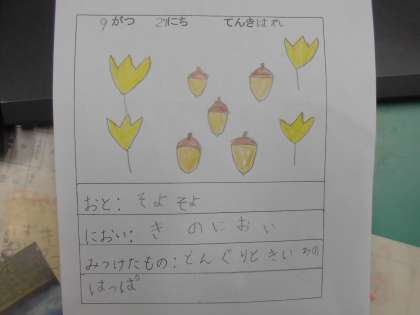 9がつ 27にち てんきはれ
おと: そよそよ
におい: き のにおい
みつけたもの: どんぐりときいろの
はっぱ